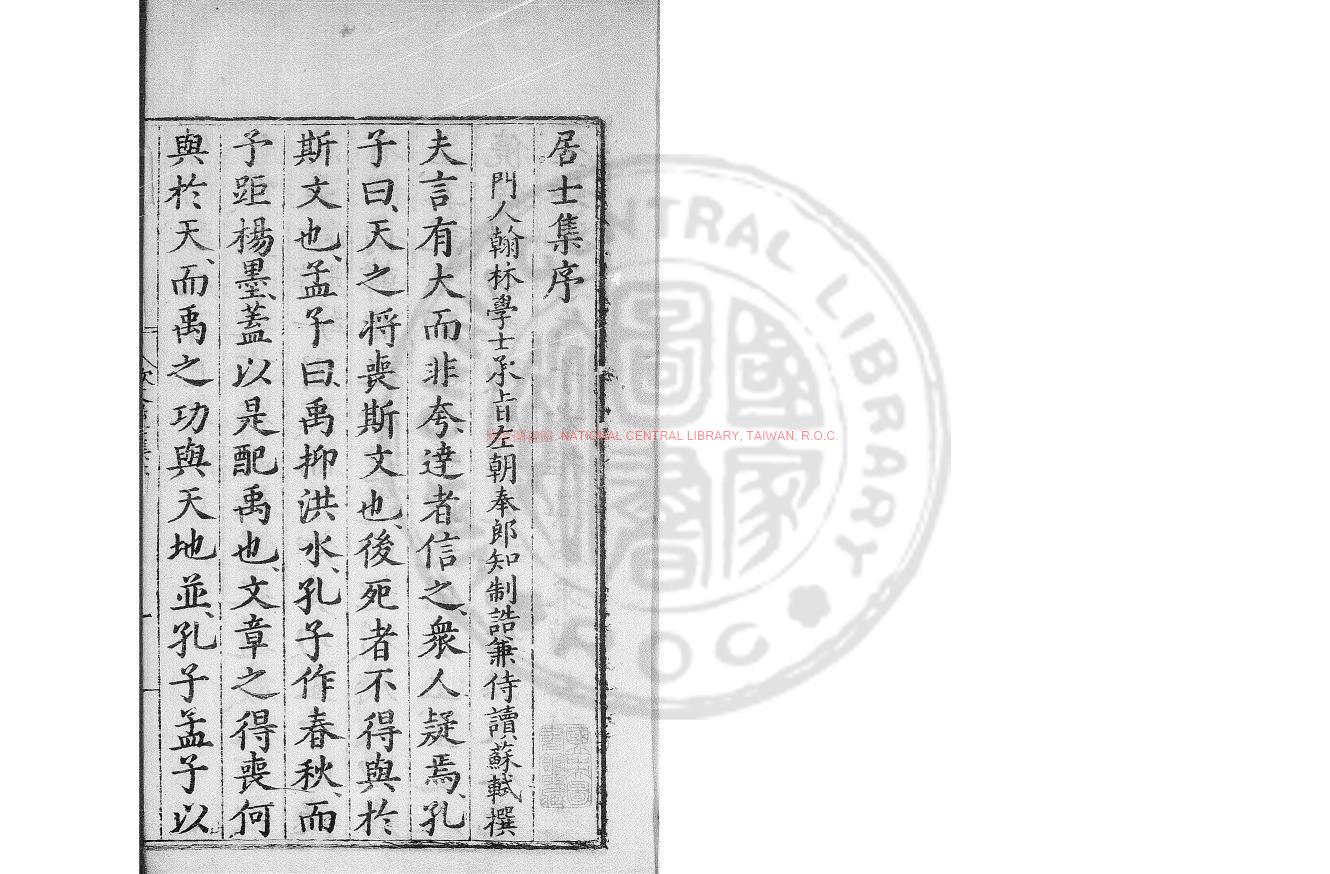 居士集序
門人翰林學士承旨左朝奉郎知制誥兼侍讀蘇軾撰
夫言有大而非夸、達者信之、衆人疑焉、孔
子曰、天之將喪斯文也、後死者不得與於
斯文也、孟子曰、禹抑洪水、孔子作春秋、而
予距楊墨、蓋以是配禹也、文章之得喪何
與於天、而禹之功與天地並、孔子孟子以
NATIONAL CENTRAL LIBRARY, TAIWAN, R.O.C.
CENTRAL LIBRARY
ROC